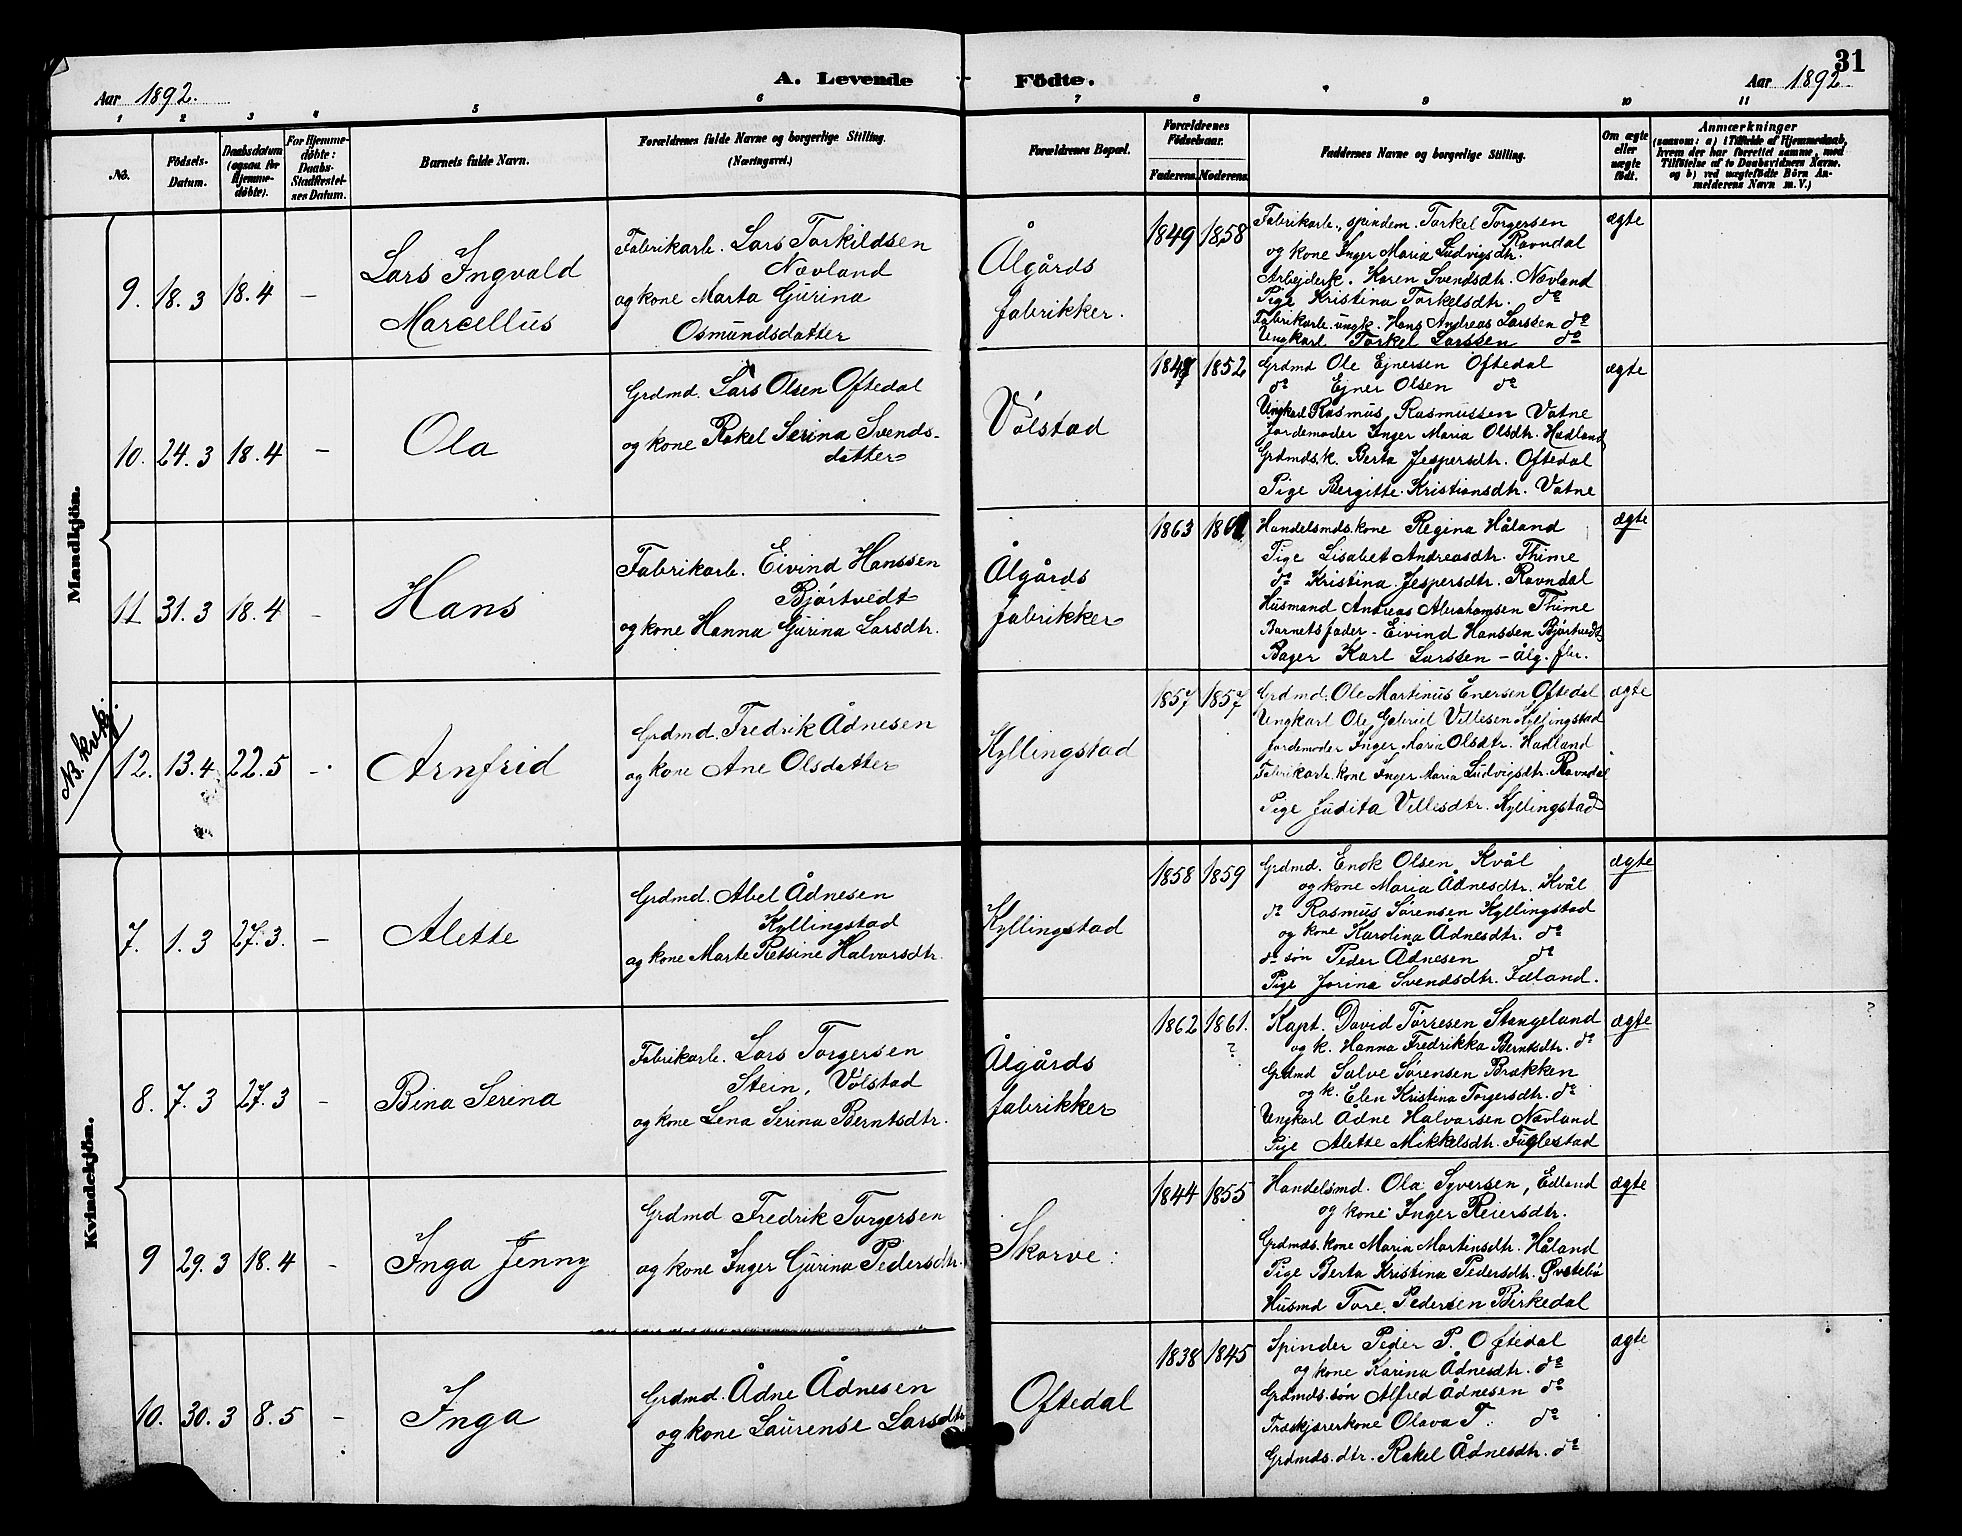 31
Aar 1892.
A. Levende Födte.
Aar 1892
1 2 3 4 5 6 7 8 9 10 11
No.
Födsels-Datum.
Daabsdatum (ogsaa for Hjemme-döbte).
For Hjemme-döbte: Daabs-Stadfæstel-ses Datum.
Barnets fulde Navn.
Forældrenes fulde Navne og borgerlige Stilling.
(Næringsvei.)
Forældrenes Bopæl.
Forældrenes Födselsaar.
Faderens. Moderens.
Faddernes Navne og borgerlige Stilling.
Om ægte eller uægte födt.
Anmærkninger
(saasom: a) i Tilfælde af Hjemmedaab, hvem der har forrettet samme, med Tilföielse af to Daabsvidners Navne. og b) ved uægtefödte Börn An-melderens Navn m. V.)
Mandkjön.
9. 18.3 18.4 –
Lars Ingvald
Marcellus
Fabrikarb. Lars Torkildsen
Nævland
og kone Marta Gurina
Osmundsdatter
Ålgårds
fabrikker.
1849 1858
Fabrikarb., spindem. Torkel Torgersen
Ravndal
og kone Inger Maria Ludvigsdtr.
Arbejderk. Karen Svendsdtr. Nævland
Pige Kristina Torkelsdtr. do
Fabrikarb. ungk. Hans Andreas Larssen do
Ungkarl Torkel Larssen do
ægte
10. 24.3 18.4 –
Ola
Grdmd. Lars Olsen Oftedal
og kone Rakel Serina Svends-
datter
Vølstad
1852
Grdmd Ole Ejnersen Oftedal
do Ejner Olsen do
Ungkarl Rasmus Rasmussen Vatne
Jordemoder Inger Maria Olsdtr. Hadland
Grdmds.k. Berta Jespersdtr. Oftedal
Pige Bergitte Kristiansdtr. Vatne
ægte
11 31.3 18.4 –
Hans
Fabrikarb. Eivind Hanssen
Bjørtvedt
og kone Hanna Gurina Larsdtr.
Ålgårds
fabrikker
1863
Handelsmds.kone Regina Håland
Pige Lisabet Andreasdtr. Thime
do Kristina Jespersdtr. Ravndal
Husmand Andreas Abrahamsen Thime
Barnets fader – Eivind Hanssen Bjørtvedt
Bager Karl Larssen – ålg. fbr.
ægte
NB. kvkj.
12. 13.4 22.5 –
Arnfrid
Grdmd. Fredrik Ådnesen
og kone Ane Olsdatter
Kyllingstad
1857 1857
Grdmd. Ole Martinus Enersen Oftedal
Ungkarl Ole Gabriel Villesen Kyllingstad
Jordemoder Inger Maria Olsdtr. Hadland
Fabrikarb. kone Inger Maria Ludvigsdtr. Ravndal
Pige Judita Villesdtr. Kyllingstad
ægte
Kvindekjön.
7. 1.3 27.3. –
Alette
Grdmd. Abel Ådnesen
Kyllingstad
og kone Marte Retsine Halvorsdtr.
Kyllingstad
1858 1859
Grdmd. Enok Olsen Kvål
og kone Maria Ådnesdtr. Kvål
do Rasmus Sørensen Kyllingstad
og kone Karolina Ådnesdtr. do
do søn Peder Ådnesen do
Pige Jorina Svendsdtr. Edland.
ægte
8. 7.3 27.3 –
Bina Serina
Fabrikarb. Lars Torgersen
Stein, Vølstad
og kone Lena Serina Berntsdtr.
Ålgårds
fabrikker
1862 1861.
?
Kapt. David Tørresen Stangeland
og k. Hanna Fredrikka Berntsdtr. do
Grdmd Salve Sørensen Brækken
og k. Elen Kristina Torgersdtr. do
Ungkarl Ådne Halvorsen Nævland
Pige Alette Mikkelsdtr. Fuglestad
ægte
?
9 29.3 18.4 –
Inga Jenny
Grdmd Fredrik Torgersen
og kone Inger Gurina Pedersdtr.
Skorve:
1844 1855
Handelsmd. Ola Syversen, Edland
og kone Inger Reiersdtr.
Grdmds. kone Maria Martinsdtr. Håland
Pige Berta Kristina Pedersdtr. Øvstebø
Husmd Tore Pedersen Birkedal
ægte
10. 30.3 8.5 –
Inga
Grdmd. Ådne Ådnesen
og kone Laurense Larsdtr
Oftedal
1838 1845
Spinder Peder P. Oftedal
og kone Karina Ådnesdtr. do
Grdmds. søn Alfred Ådnesen do
Træskjærerkone Olava T. do
Grdmds. dtr. Rakel Ådnesdtr. do
ægte